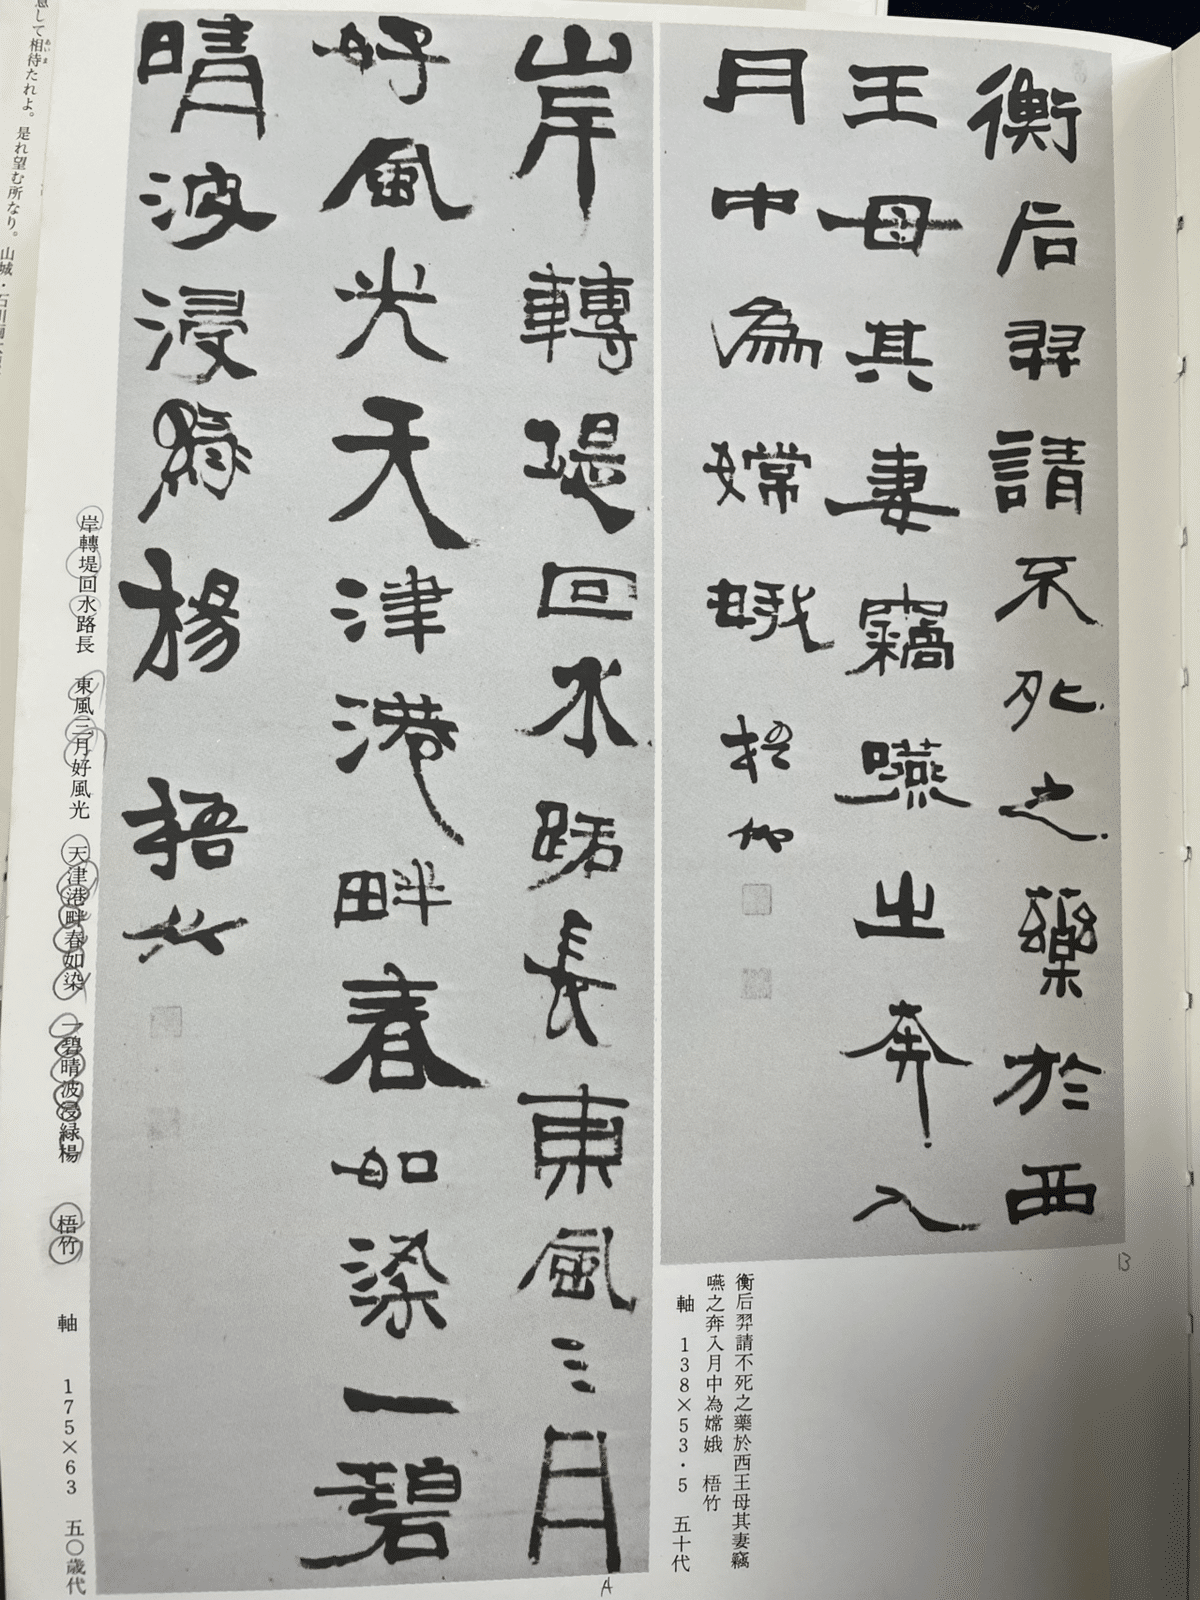 衡后羿請不死之藥於西
王母其妻竊嚥之奔入
月中為嫦娥 梧竹
B
衡后羿請不死之藥於西王母其妻竊
嚥之奔入月中為嫦娥 梧竹
軸 138×53.5 五十代
岸轉堤回水路長東風三月
好風光天津港畔春如染一碧
晴波浸緑楊 梧竹
A
岸轉堤回水路長 東風三月好風光 天津港畔春如染 一碧晴波浸緑楊 梧竹 軸 175×63 五〇歳代
して相待たれよ。是れ望む所なり。山城・石川